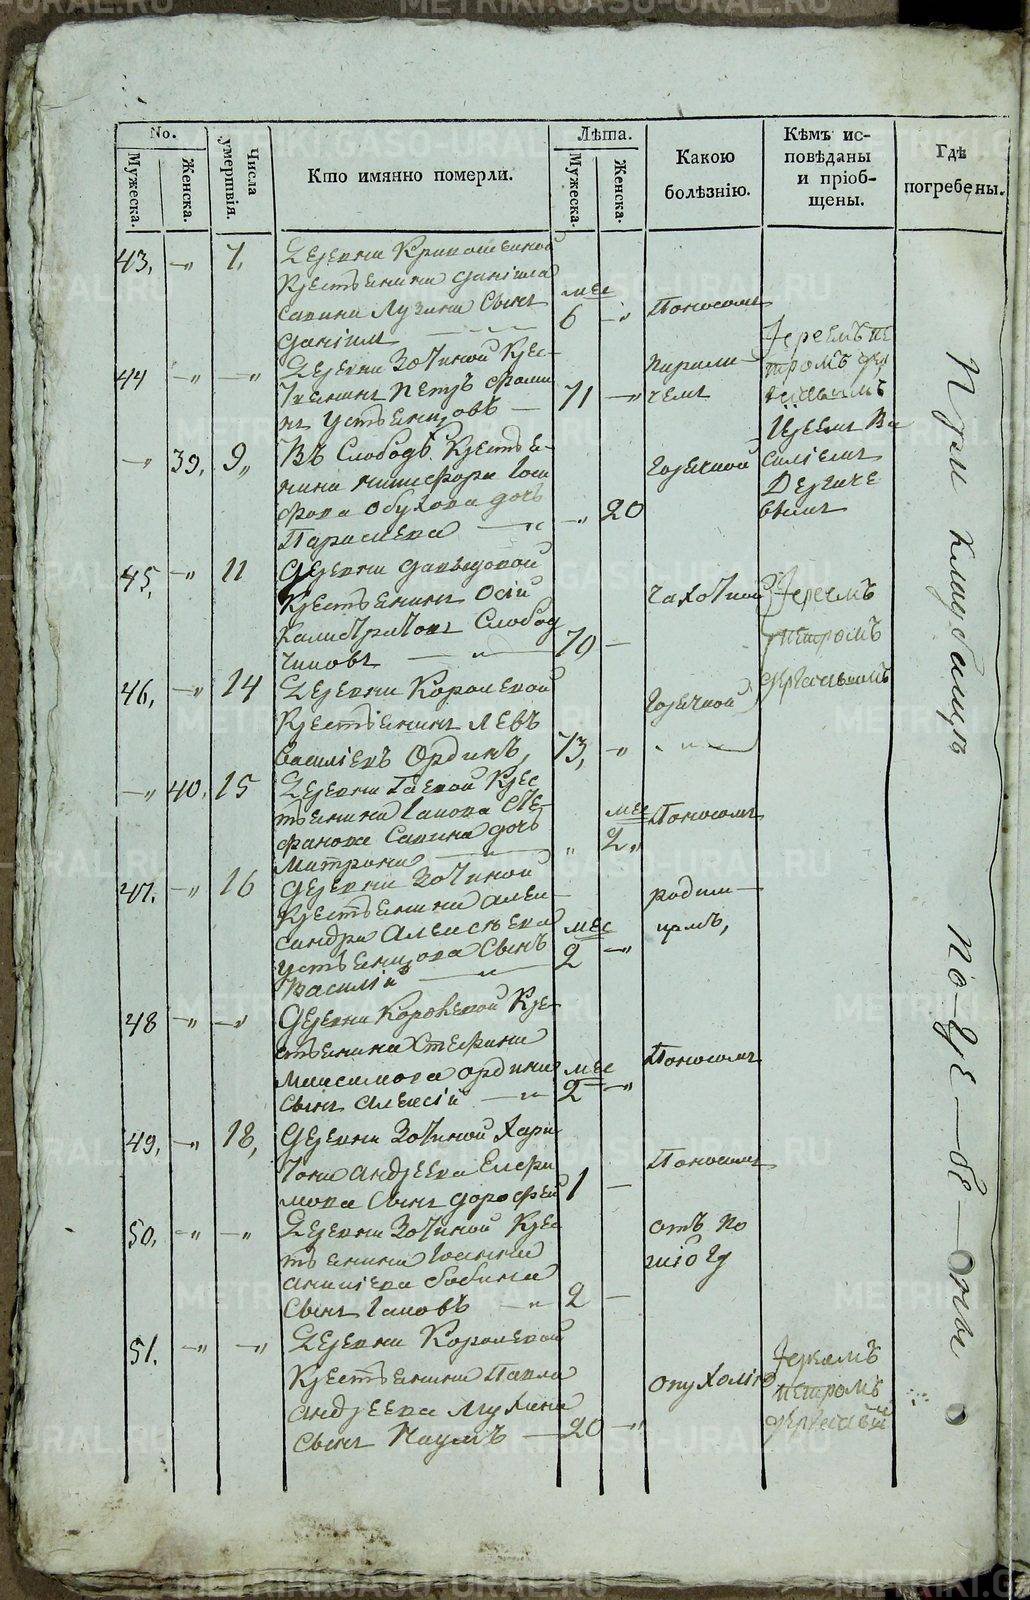 No.
Мужеска.
Женска.
Числа умертвія.
Кто имянно померли.
Лѣта.
Мужеска.
Женска.
Какою болѣзнію.
Кѣмъ исповѣданы и пріобщены.
Гдѣ погребены.
43, —„ 7,
Деревни
Крестьянина Даніила
Савина Лузина сынъ
Даніилъ
мес 6 —„
Поносомъ
44 —„ —„
Деревни Зотиной Крес-
тьянинъ Петръ Ѳоми
нъ Устьянцовъ —
71 —„
парали-
чемъ
Іереемъ Пе
тромъ
—„ 39, 9„
Въ Слободѣ Крестья-
нина Никифора Іоси
фова Обухова дочь
Параскева
—„ 20
горячкой
Іереемъ Ва
силіемъ
Дерягиче
вымъ
45, —„ 11
Деревни Давыдовой
Крестьянинъ Осій
Калистратовъ Слобод
чиковъ
70, —
чахоткой
Іереемъ
Петромъ
46, —„ 14
Деревни Королевой
Крестьянинъ Левъ
Василіевъ Ординъ,
73, —„
Горячкой
—„ 40, 15
Деревни Гаевой Крес
тьянина Іакова Сте-
фанова Савина дочь
Матрона
„ мес 2„
Поносомъ
47. —„ 16
Деревни Зотиной
Крестьянина Алек-
сандра Алексѣева
Устьянцова сынъ
Василій
мес 2 —„
родим-
цемъ,
48 —„ —„
Деревни Королевой Кре-
стьянина Стефана
Максимова Ордина
сынъ Алексій —„
мес 2 —„
Поносомъ
49, —„ 18,
Деревни Зотиной Хари
тона Андреева Елфи
мова сынъ Дорофей
1 —
Поносомъ
50, —„ —„
Деревни Зотиной Крес
тьянина Іоанна
Аникіева Бабина
сынъ Іаковъ —„
2 —
отъ по
51. —„ —„
Деревни Королевой
Крестьянина Павла
Андреева Мухина
сынъ Наумъ —
20 —„
опухолію
Іереемъ
Петромъ
При кладбищѣ погребены
METRIKI.GASO-URAL.RU